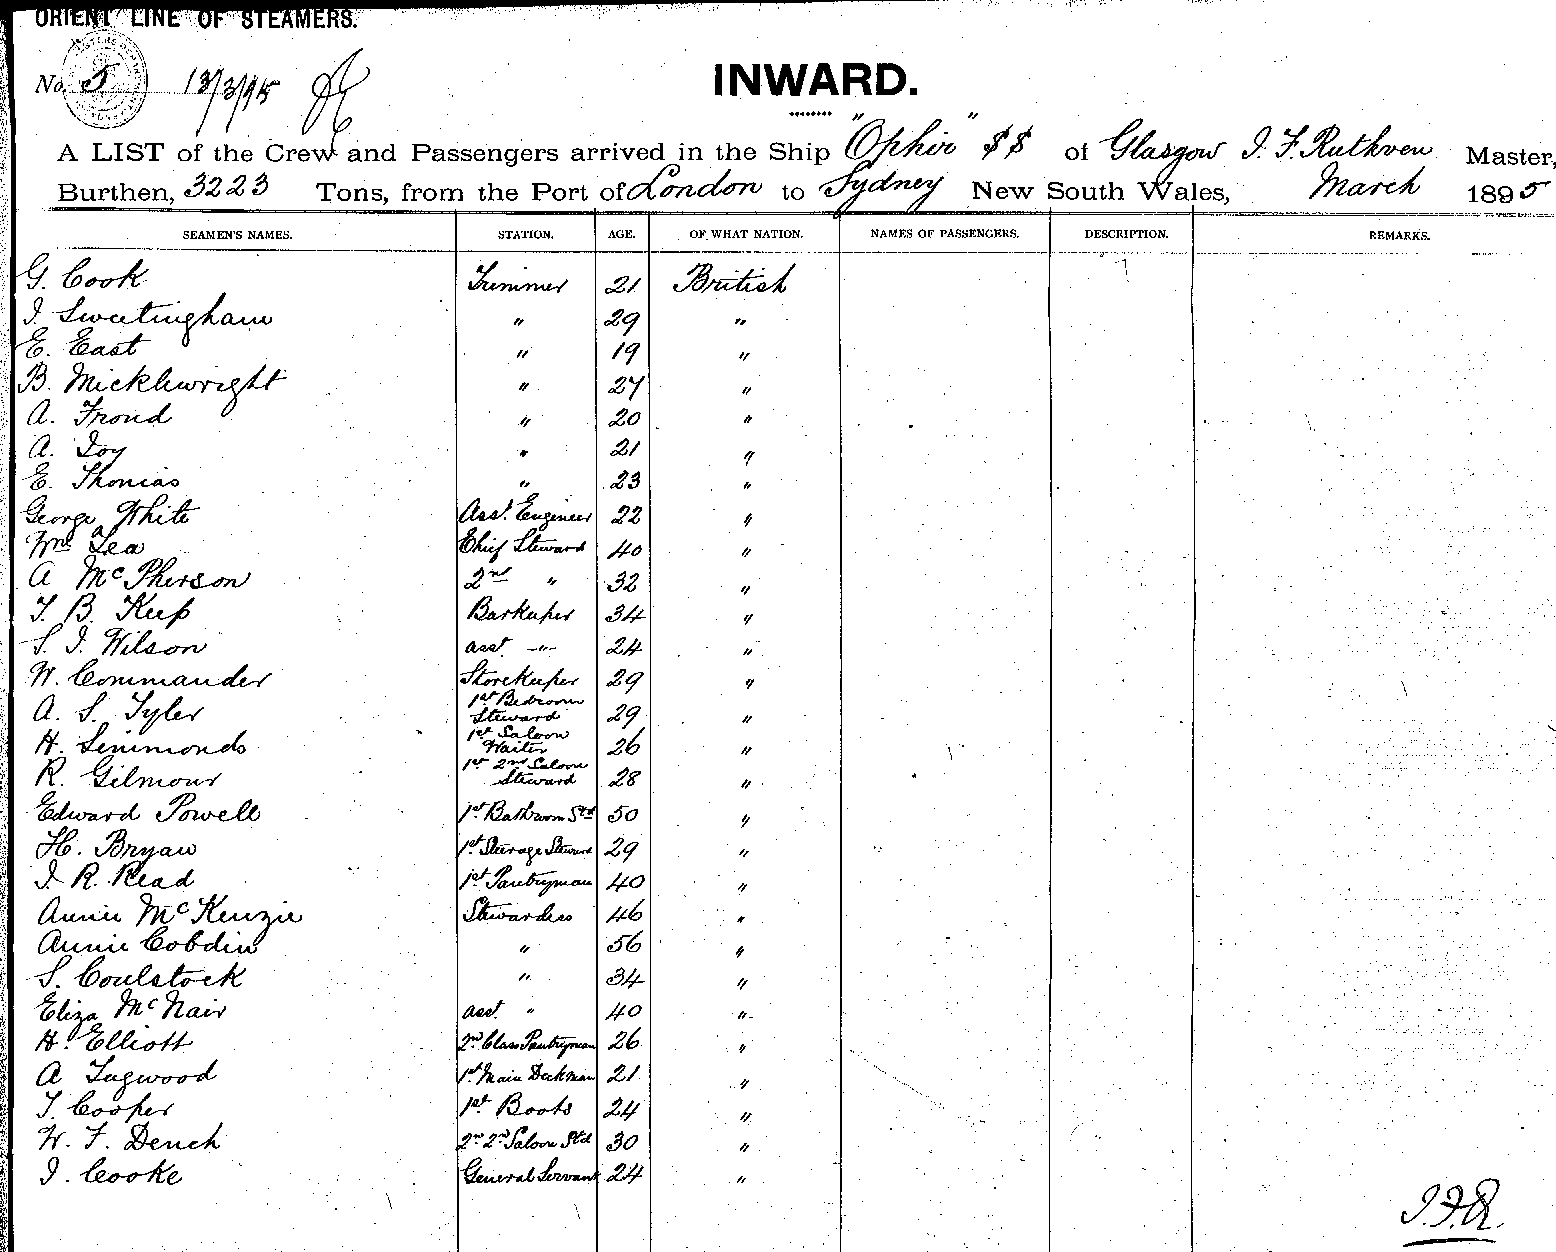 ORIENT LINE OF STEAMERS.
No. 5 13/3/95
INWARD.
A LIST of the Crew and Passengers arrived in the Ship "Ophir" SS of Glasgow J. F. Ruthven Master,
Burthen, 3223 Tons, from the Port of London to Sydney New South Wales, March 1895
SEAMEN'S NAMES. STATION. AGE. OF WHAT NATION. NAMES OF PASSENGERS. DESCRIPTION. REMARKS.
G. Cook Trimmer 21 British
J. Sweetingham " 29 "
E. East " 19 "
B. Micklewright " 27 "
A. Frond " 20 "
A. Joy " 21 "
E. Thomas " 23 "
George White Asst. Engineer 22 "
Wm. Lea Chief Steward 40 "
A McPherson 2nd " 32 "
T. B. Keep Barkeeper 34 "
S. J. Wilson asst. -"- 24 "
W. Commander Storekeeper 29 "
A. S. Tyler 1st Bedroom Steward 29 "
H. Simmonds 1st Saloon Waiter 26 "
R. Gilmour 1st 2nd Saloon Steward 28 "
Edward Powell 1st Bathroom Std 50 "
H. Bryan 1st Steerage Steward 29 "
J. R. Read 1st Pantryman 40 "
Annie McKenzie Stewardess 46 "
Annie Cobdin " 56 "
S. Coulstock " 34 "
Eliza McNair asst. " 40 "
H. Elliott 2nd Class Pantryman 26 "
A Tugwood 1st Main Deckman 21 "
T. Cooper 1st Boots 24 "
W. F. Dench 2nd 2nd Saloon Std 30 "
J. Cooke General Servant 24 "
J.F.R.